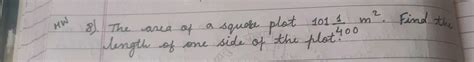 HW 8) The area of a square plot 101 1/400 m². Find the
length of one side of the plot.